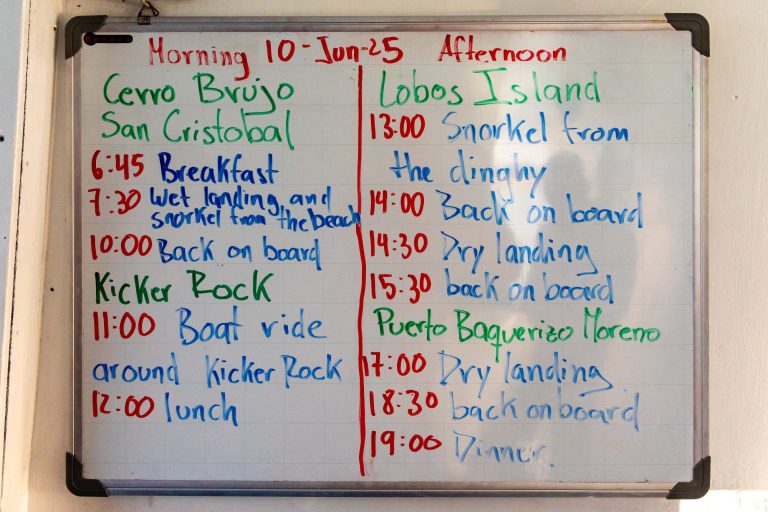 Morning 10-Jun-25 Afternoon
Cerro Brujo
San Cristobal
6:45 Breakfast
7:30 wet landing and
snorkel from the beach
10:00 Back on board
Kicker Rock
11:00 Boat ride
around Kicker Rock
12:00 lunch
Lobos Island
13:00 Snorkel from
the dinghy
14:00 Back on board
14:30 Dry landing
15:30 back on board
Puerto Baquerizo Moreno
17:00 Dry landing
18:30 back on board
19:00 Dinner.